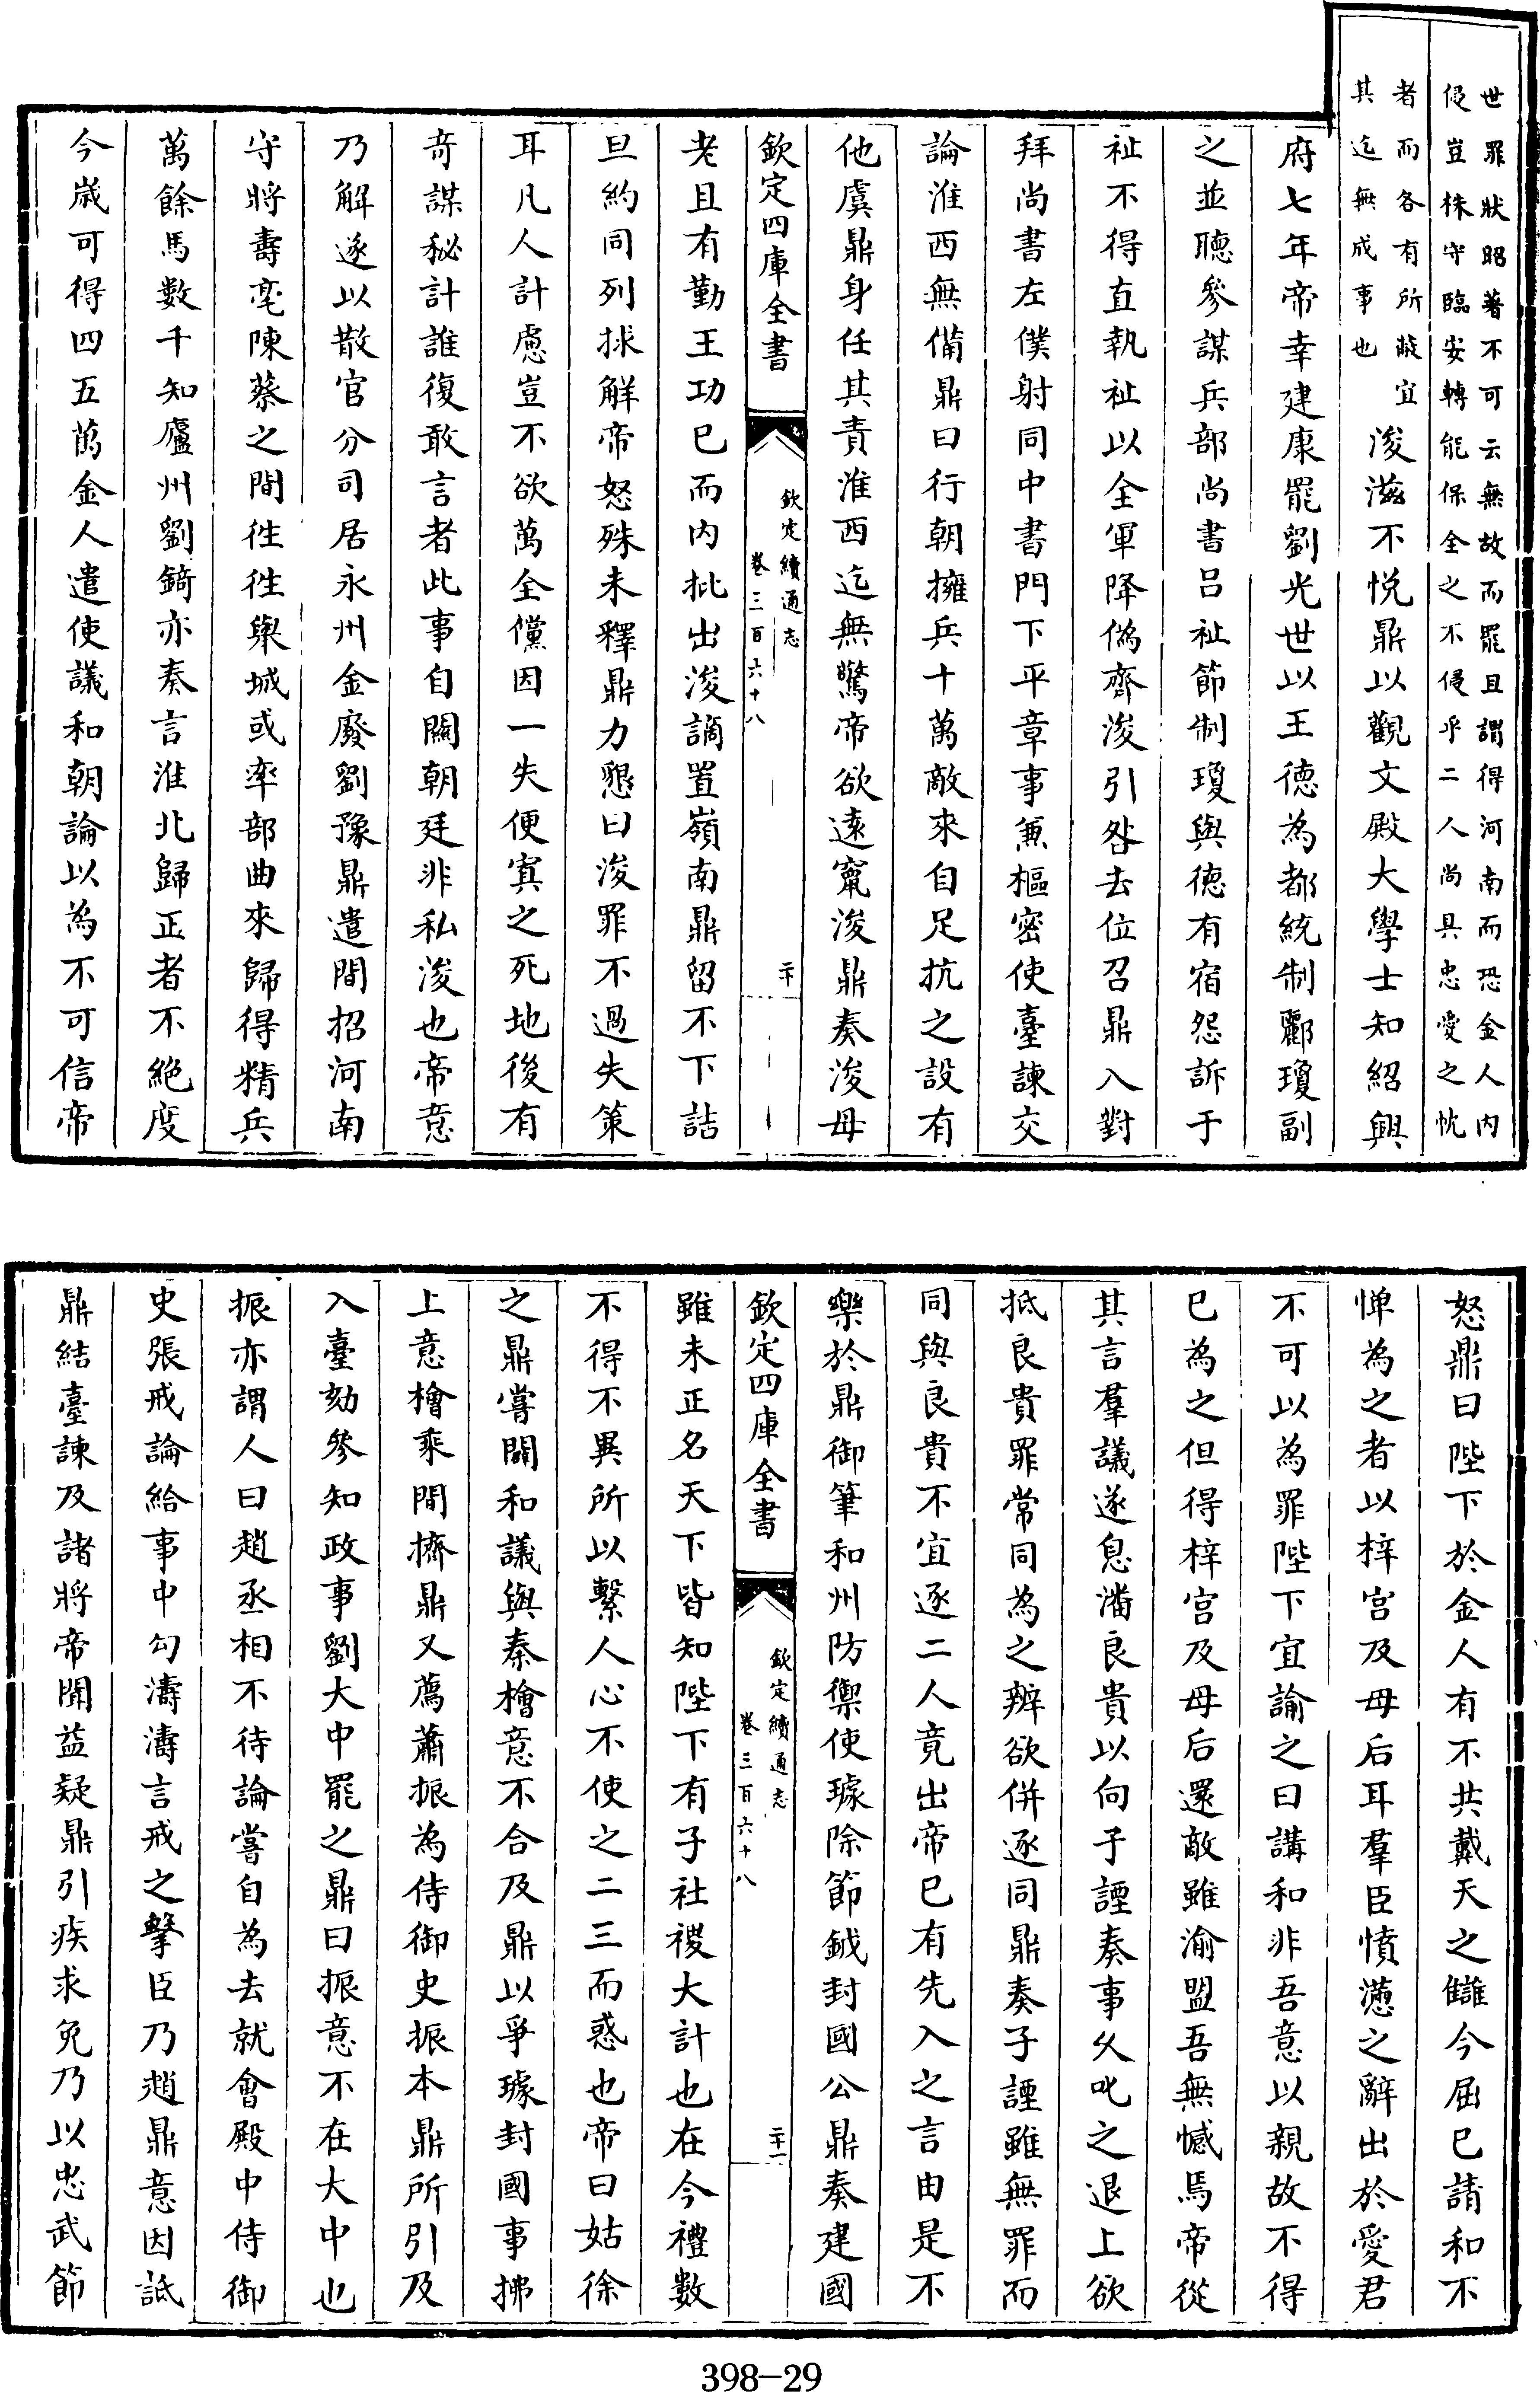 世罪狀昭著不可云無故而罷且謂得河南而恐金人内
侵豈株守臨安轉能保全之不侵乎二人尚具忠愛之忱
者而各有所蔽宜
其迄無成事也
浚滋不悦鼎以觀文殿大學士知紹興
府七年帝幸建康罷劉光世以王德為都統制酈瓊副
之並聽參謀兵部尚書吕祉節制瓊與德有宿怨訴于
祉不得直執祉以全軍降偽齊浚引咎去位召鼎入對
拜尚書左僕射同中書門下平章事兼樞密使臺諫交
論淮西無備鼎曰行朝擁兵十萬敵來自足抗之設有
他虞鼎身任其責淮西迄無驚帝欲遠竄浚鼎奏浚母
欽定四庫全書
欽定續通志
卷三百六十八
二十
老且有勤王功已而内批出浚謫置嶺南鼎留不下詰
旦約同列捄解帝怒殊未釋鼎力懇曰浚罪不過失策
耳凡人計慮豈不欲萬全儻因一失便寘之死地後有
奇謀秘計誰復敢言者此事自關朝廷非私浚也帝意
乃解遂以散官分司居永州金廢劉豫鼎遣間招河南
守將壽亳陳蔡之間徃徃舉城或率部曲來歸得精兵
萬餘馬數千知廬州劉錡亦奏言淮北歸正者不絶度
今歲可得四五萬金人遣使議和朝論以為不可信帝
怒鼎曰陛下於金人有不共戴天之讎今屈已請和不
憚為之者以梓宫及母后耳羣臣憤懣之辭出於愛君
不可以為罪陛下宜諭之曰講和非吾意以親故不得
已為之但得梓宫及母后還敵雖渝盟吾無憾焉帝從
其言羣議遂息潘良貴以向子諲奏事久叱之退上欲
抵良貴罪常同為之辨欲併逐同鼎奏子諲雖無罪而
同與良貴不宜逐二人竟出帝已有先入之言由是不
樂於鼎御筆和州防禦使璩除節鉞封國公鼎奏建國
欽定四庫全書
欽定續通志
卷三百六十八
二十一
雖未正名天下皆知陛下有子社稷大計也在今禮數
不得不異所以繫人心不使之二三而惑也帝曰姑徐
之鼎嘗闢和議與秦檜意不合及鼎以爭璩封國事拂
上意檜乘間擠鼎又薦蕭振為侍御史振本鼎所引及
入臺劾參知政事劉大中罷之鼎曰振意不在大中也
振亦謂人曰趙丞相不待論嘗自為去就會殿中侍御
史張戒論給事中勾濤濤言戒之擊臣乃趙鼎意因詆
鼎結臺諫及諸將帝聞益疑鼎引疾求免乃以忠武節
398—29